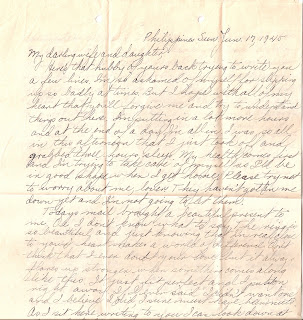 Philippines Sun. Jun. 17, 1945
My darling wife and daughter,
Here's that hubby of yours back trying to write you
a few lines. I'm so ashamed of myself for slipping
up so badly at times. But I hope with all of my
heart that you'll forgive me and try to understand
things out here. I'm putting in a lot more hours
and at the end of a day, I'm all in. I was so all in
this afternoon that I just took off and
grabbed three hours sleep. My health comes first
and I'm trying to take care of myself so I'll be
in good shape when I get home. Please try not
to worry about me, honey. They haven't gotten me
down yet and I'm not going to let them.
Today's mail brought a beautiful present to
me, and I don't know what to say. The is
so beautiful and just knowing that it
to your heart makes a world of difference. Don't
think that I ever doubt your love but it always
when something comes along
like this. It just fit perfect and I put it on
right away.
and I believe
As I sit here writing to you I can look down at